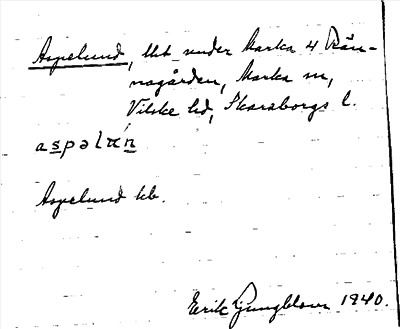 Aspelund, lht under Marka 4 Rån-
nagården, Marka sn,
Vilske hd, Skaraborgs l.
aspəlɯ́n
Aspelund kb.
Erik Ljungblom 1940.